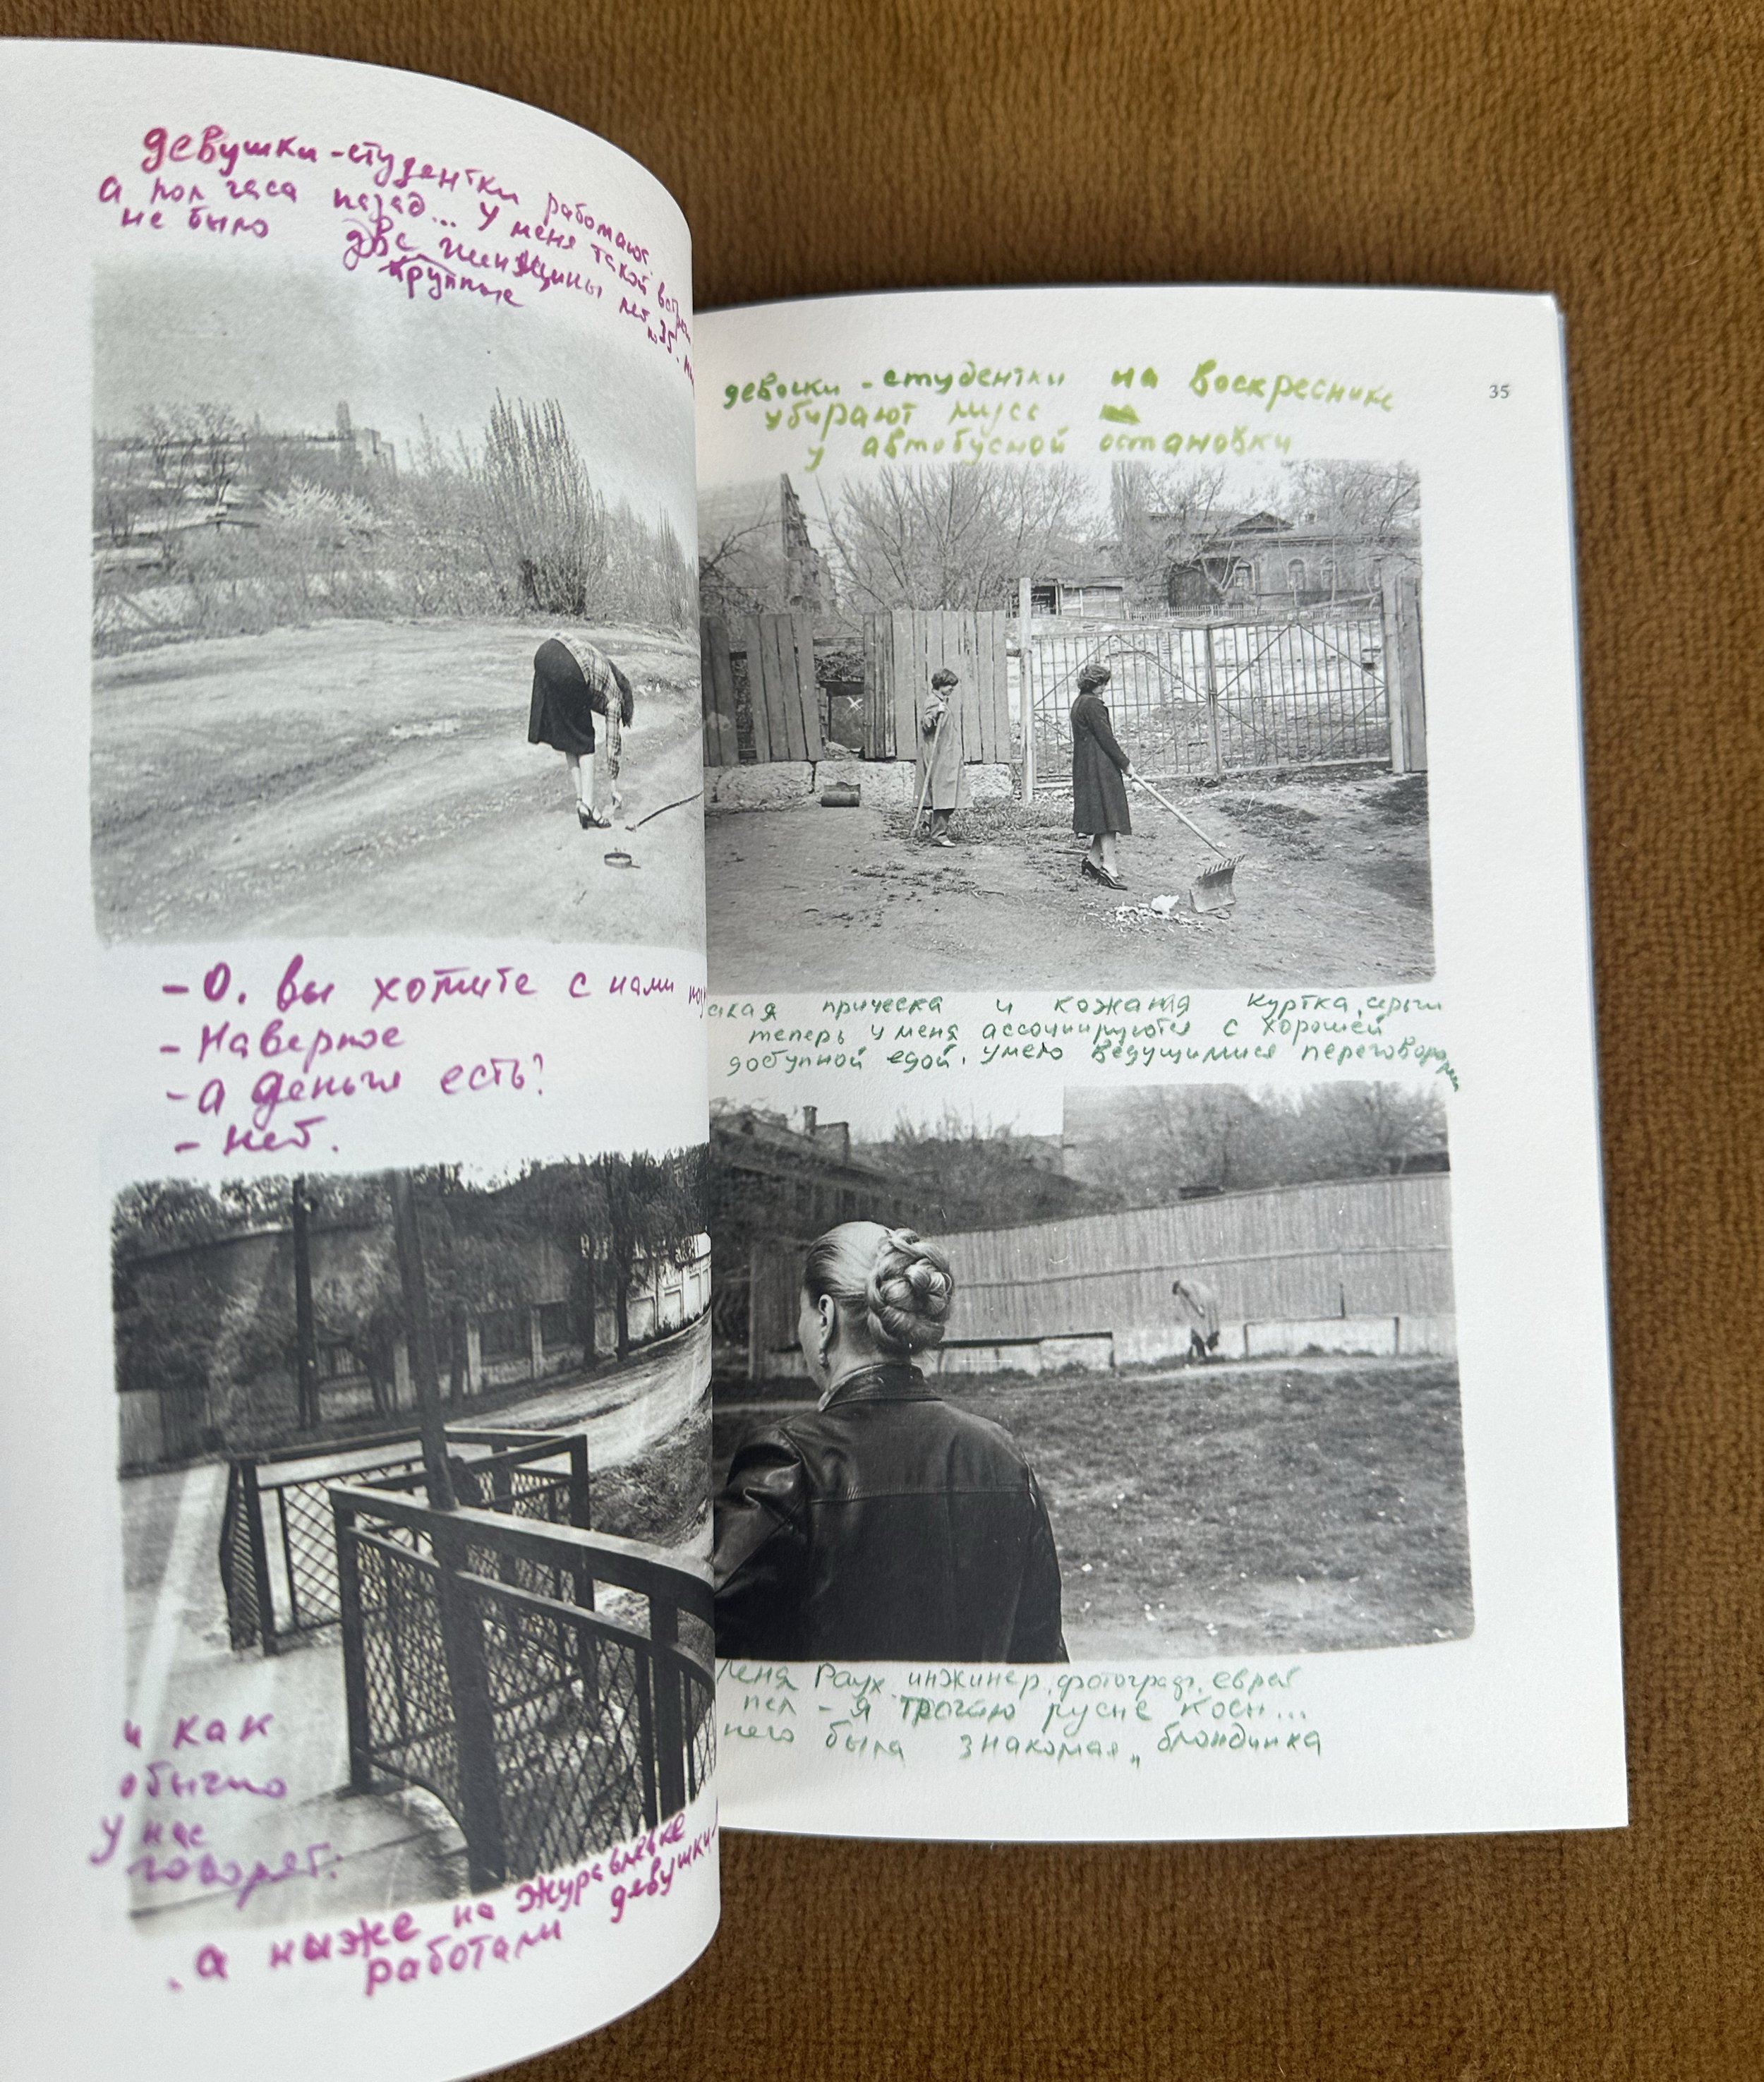 девушки-студентки работают.
а пол часа назад... У меня такой
не было две женщины лет по 35.
крупные
- О. вы хотите с нами
- Наверное
- а деньги есть?
- нет.
и как
обычно
у нас
говорят:
. а ныже на Журавлевке
работали девушки
35
девочки-студентки на воскреснике
убирают мусс
у автобусной остановки
прическа и кожаная куртка, серьги
теперь у меня ассоциируются с хорошей
доступной едой, умело ведущимися переговорами
Леня Раух инжинер, фотограф, еврей
пел - я трогаю русые косы...
него была знакомая, блондинка